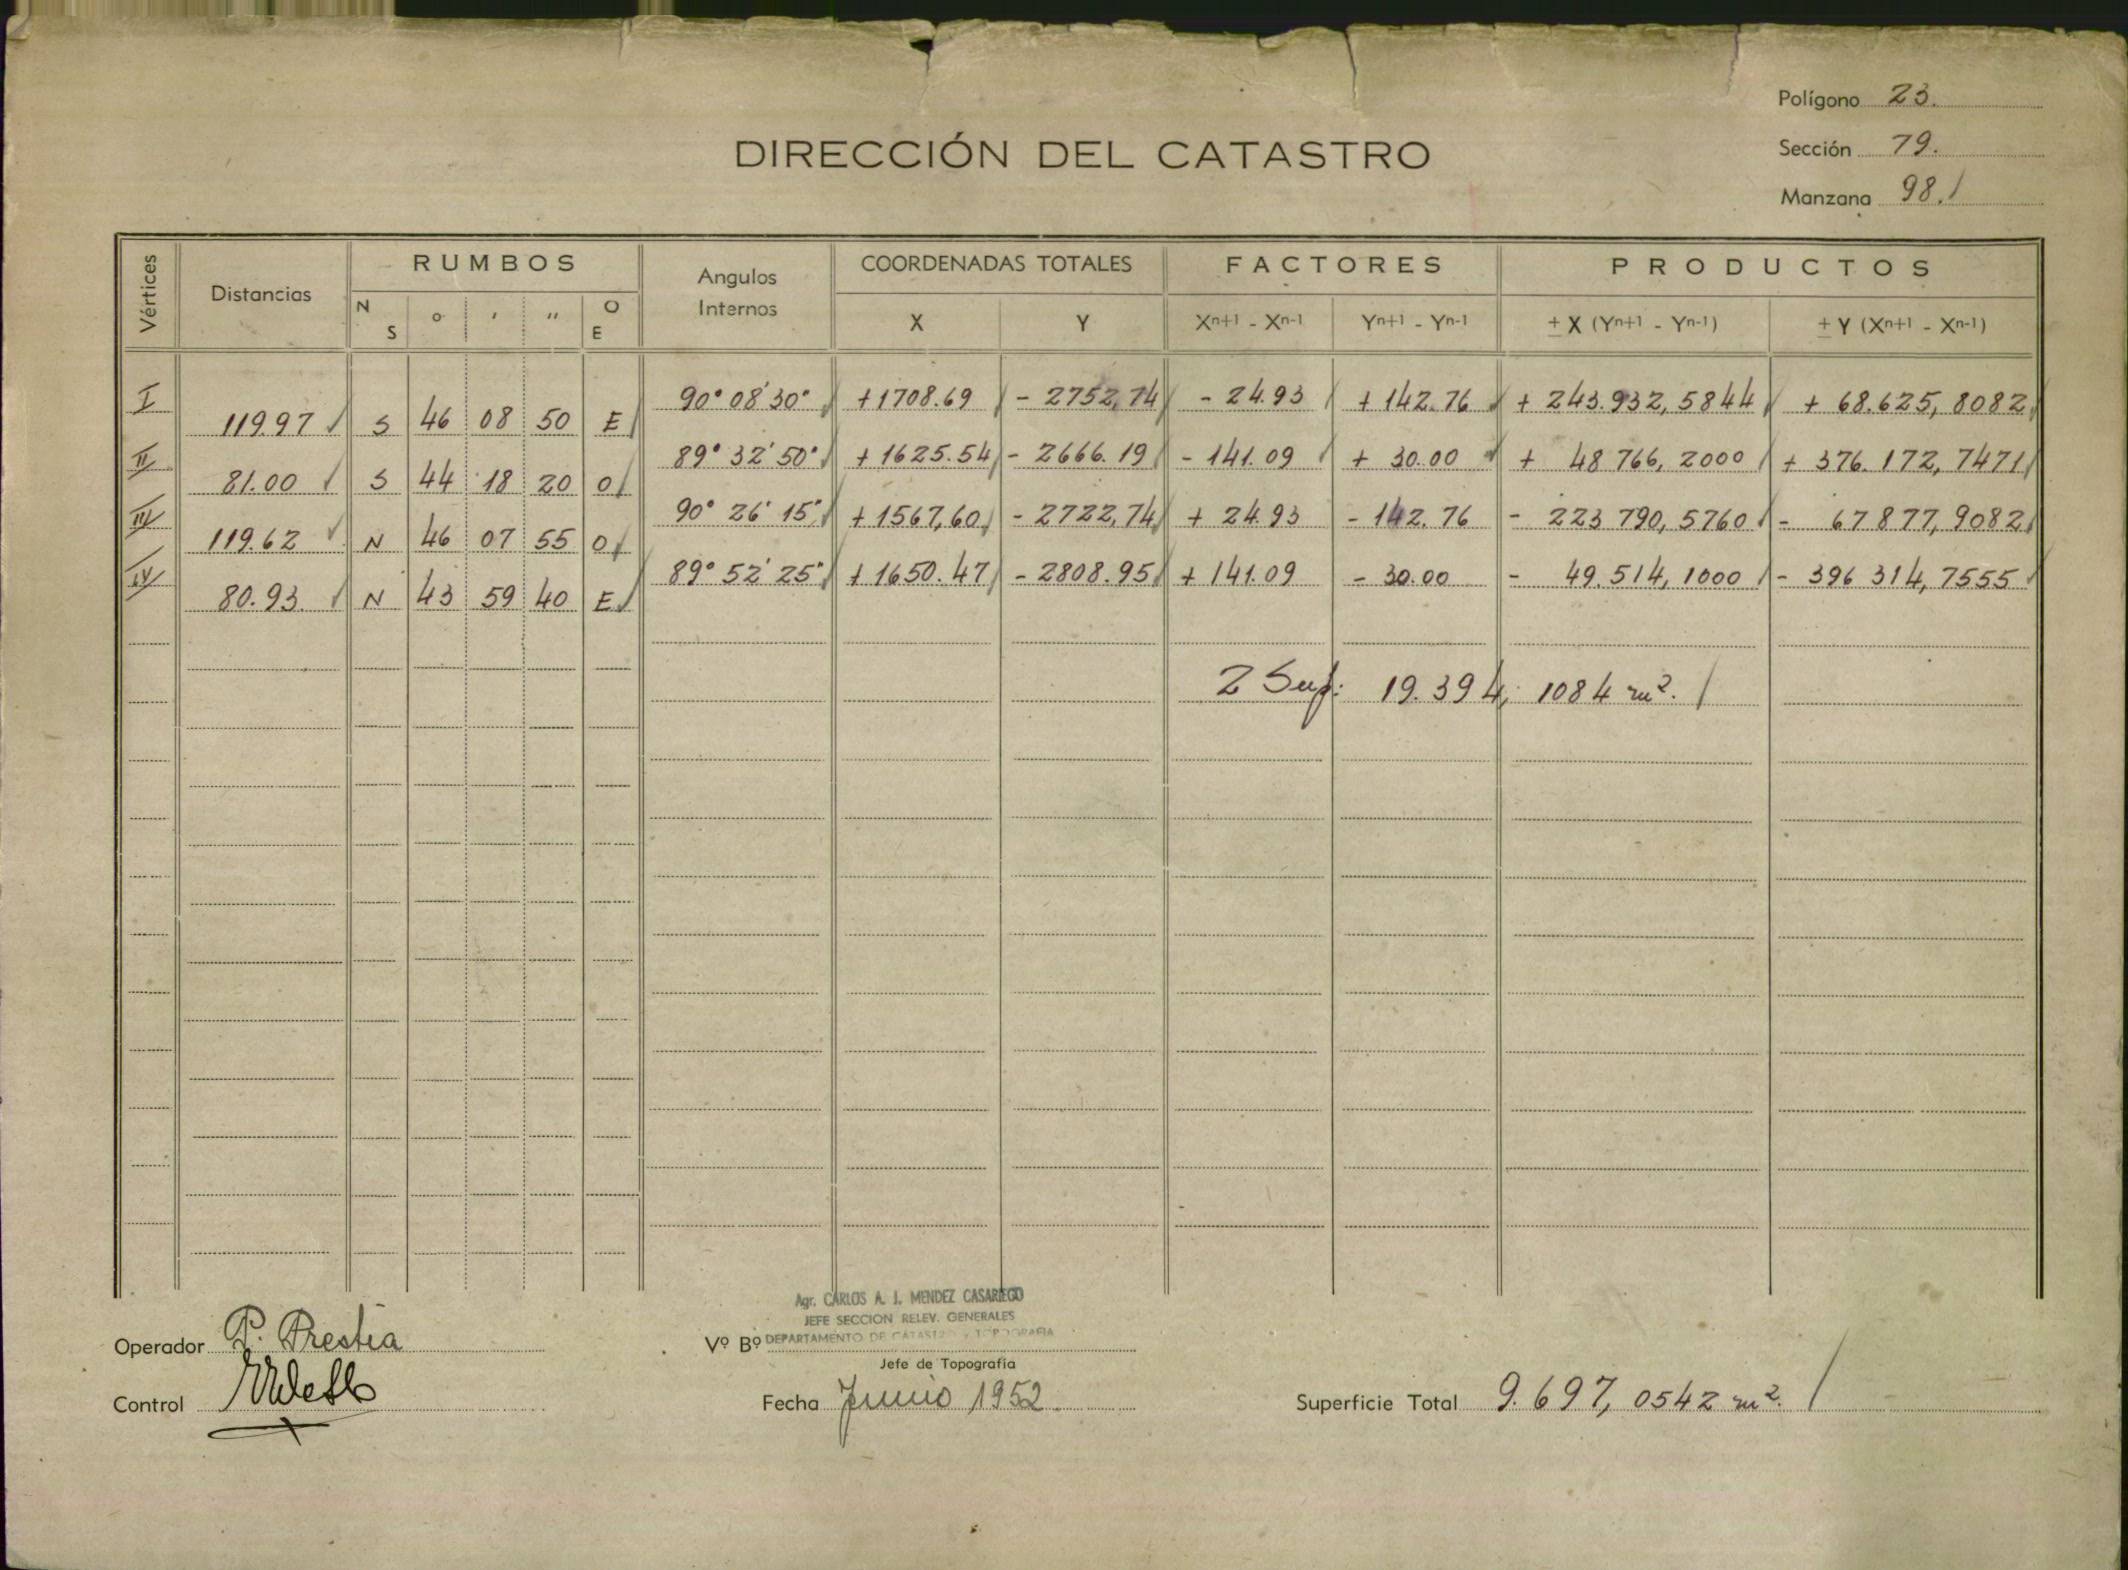 Polígono 23.
DIRECCIÓN DEL CATASTRO
Sección 79.
Manzana 98.
Vértices Distancias RUMBOS Angulos Internos COORDENADAS TOTALES FACTORES PRODUCTOS
N S o ' " O E X Y Xn+1 - Xn-1 Yn+1 - Yn-1 ± X (Yn+1 - Yn-1) ± Y (Xn+1 - Xn-1)
I 90° 08' 30" +1708.69 - 2752,74 - 24.93 + 142.76 + 243.932,5844 + 68.625,8082
119.97 S 46 08 50 E
II 89° 32' 50" + 1625.54 - 2666.19 - 141.09 + 30.00 + 48 766,2000 + 376.172,7471
81.00 S 44 18 20 O
III 90° 26' 15" + 1567,60 - 2722,74 + 24.93 - 142.76 - 223 790,5760 - 67877,9082
119.62 N 46 07 55 O
IV 89° 52' 25" + 1650.47 - 2808.95 + 141.09 - 30.00 - 49.514,1000 - 396 314,7555
80.93 N 43 59 40 E
2 Sup: 19.394, 1084 m².
Agr. CARLOS A. J. MENDEZ CASARIEGO
JEFE SECCION RELEV. GENERALES
Operador P. Prestia Vº Bº DEPARTAMENTO DE CATASTRO y TOPOGRAFIA
Jefe de Topografía
Control Fecha Junio 1952. Superficie Total 9.697,0542 m².